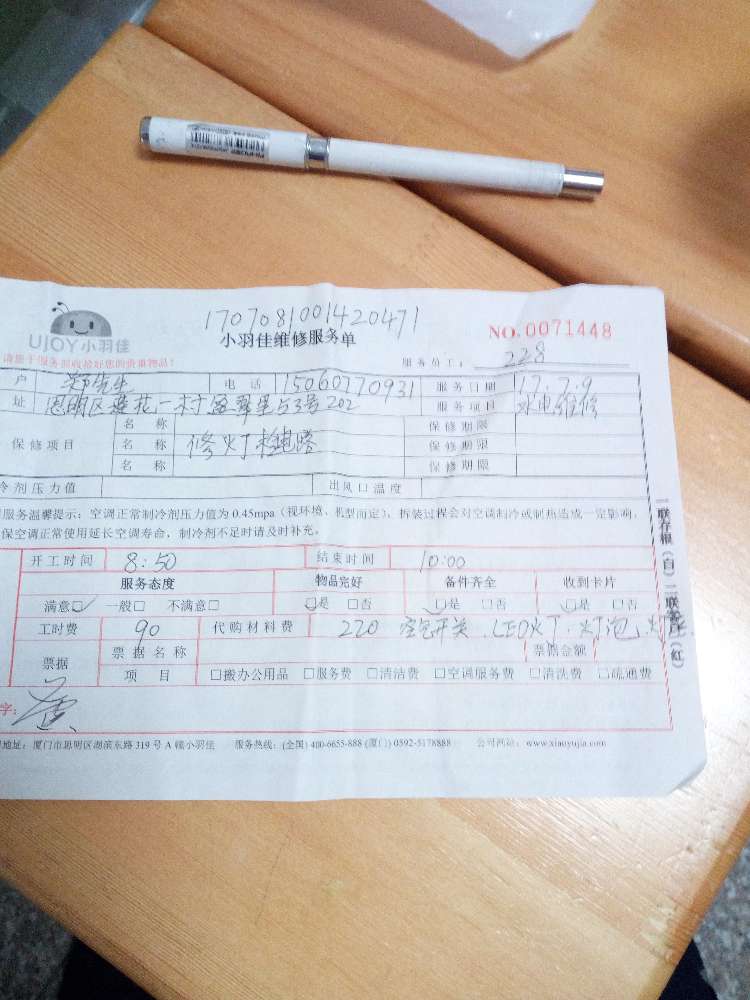 1707081001420471
UJOY小羽佳
小羽佳维修服务单
NO.0071448
请您于服务前收拾好您的贵重物品!
服务员工: 228
户 郑先生 电话 15060770931 服务日期 17.7.9
址 思明区莲花一村 53号202 服务项目 水电维修
名称 保修期限
保修项目 名称 修灯检电路 保修期限
名称 保修期限
冷剂压力值 出风口温度
服务温馨提示:空调正常制冷剂压力值为 0.45mpa(视环境、机型而定),拆装过程会对空调制冷或制热造成一定影响,
保空调正常使用延长空调寿命,制冷剂不足时请及时补充。
开工时间 8:50 结束时间 10:00
服务态度 物品完好 备件齐全 收到卡片
满意☑ 一般□ 不满意□ ☑是 □否 ☑是 □否 ☑是 □否
工时费 90 代购材料费 220 空气开关、LED灯、灯泡、
票据 票据名称 票据金额
项目 □搬办公用品 □服务费 □清洁费 □空调服务费 □清洗费 □疏通费
字:
地址:厦门市思明区湖滨东路 319 号 A 幢小羽佳 服务热线:(全国) 400-6655-888 (厦门) 0592-5178888 公司网站:www.xiaoyujia.com
一联存根(白)二联客户(红)